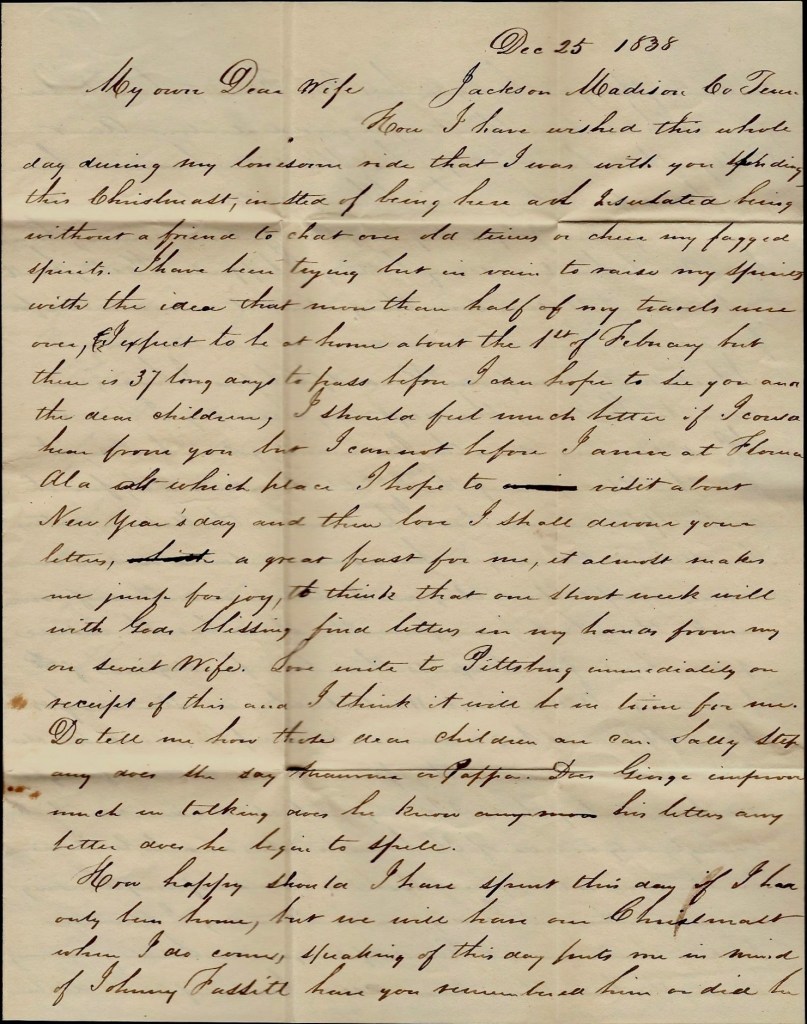 Dec 25 1838
My own Dear Wife Jackson Madison Co Tenn
How I have wished this whole
day during my lonesome ride that I was with you spending
this Christmast, in sted of being here an Insulated being
without a friend to chat over old times or cheer my fagged
spirits. I have been trying but in vain to raise my spirits
with the idea that more than half of my travels were
over, I expect to be at home about the 1st of February but
there is 37 long days to pass before I can hope to see you and
the dear children, I should feel much better if I could
hear from you but I cannot before I arrive at Florence
Ala at which place I hope to visit about
New Year's day and then love I shall devour your
letters, a great feast for me, it almost makes
me jump for joy, to think that one short week will
with Gods blessing find letters in my hands from my
own sweet Wife. Love write to Pittsburg immediately on
receipt of this and I think it will be in time for me.
Do tell me how those dear children are can Sally step
any does she say Mamma or Pappa. Does George improve
much in talking does he know his letters any
better does he begin to spell.
How happy should I have spent this day if I had
only been home, but we will have our Christmast
when I do come, speaking of this day puts me in mind
of Johnny Fassitt have you remembered him or did he